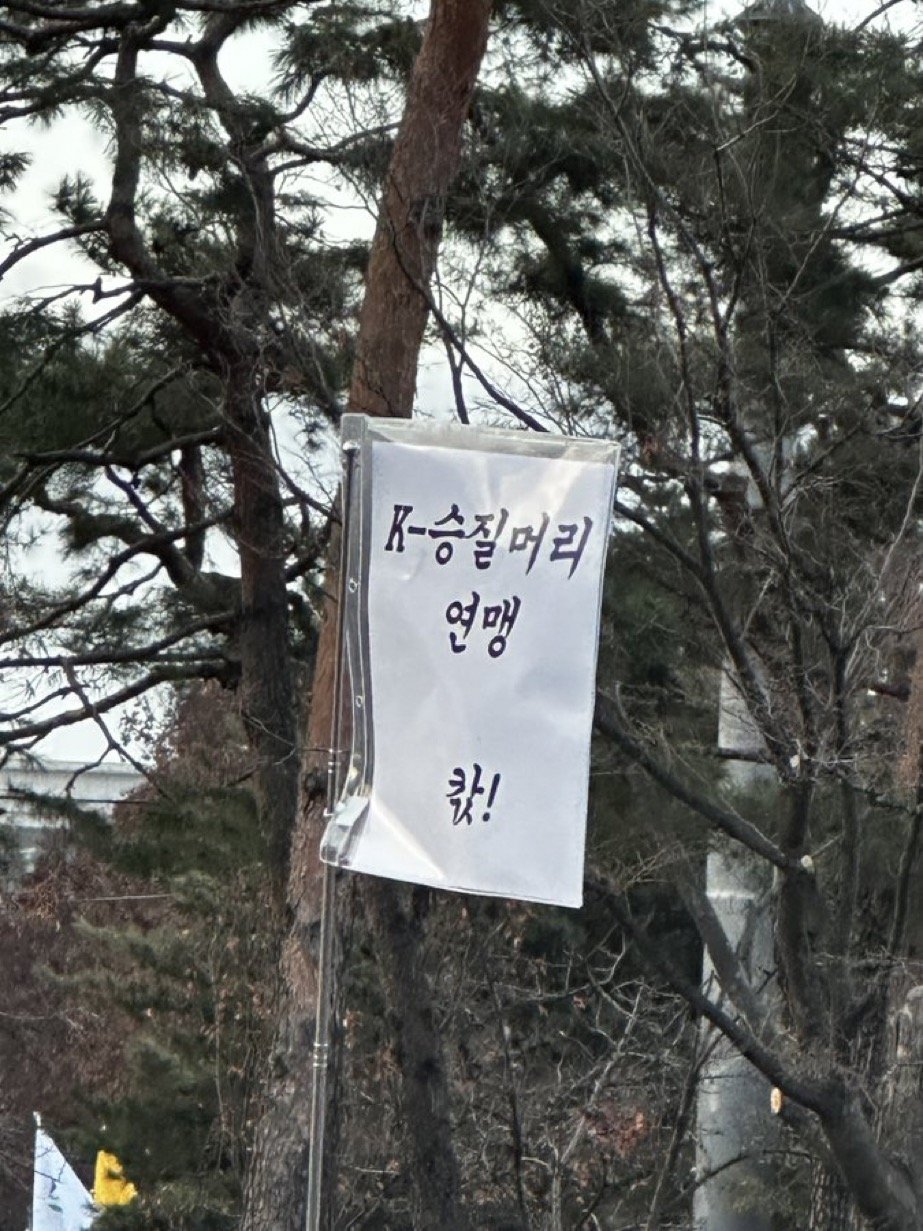 K-승질머리
연맹
캆!